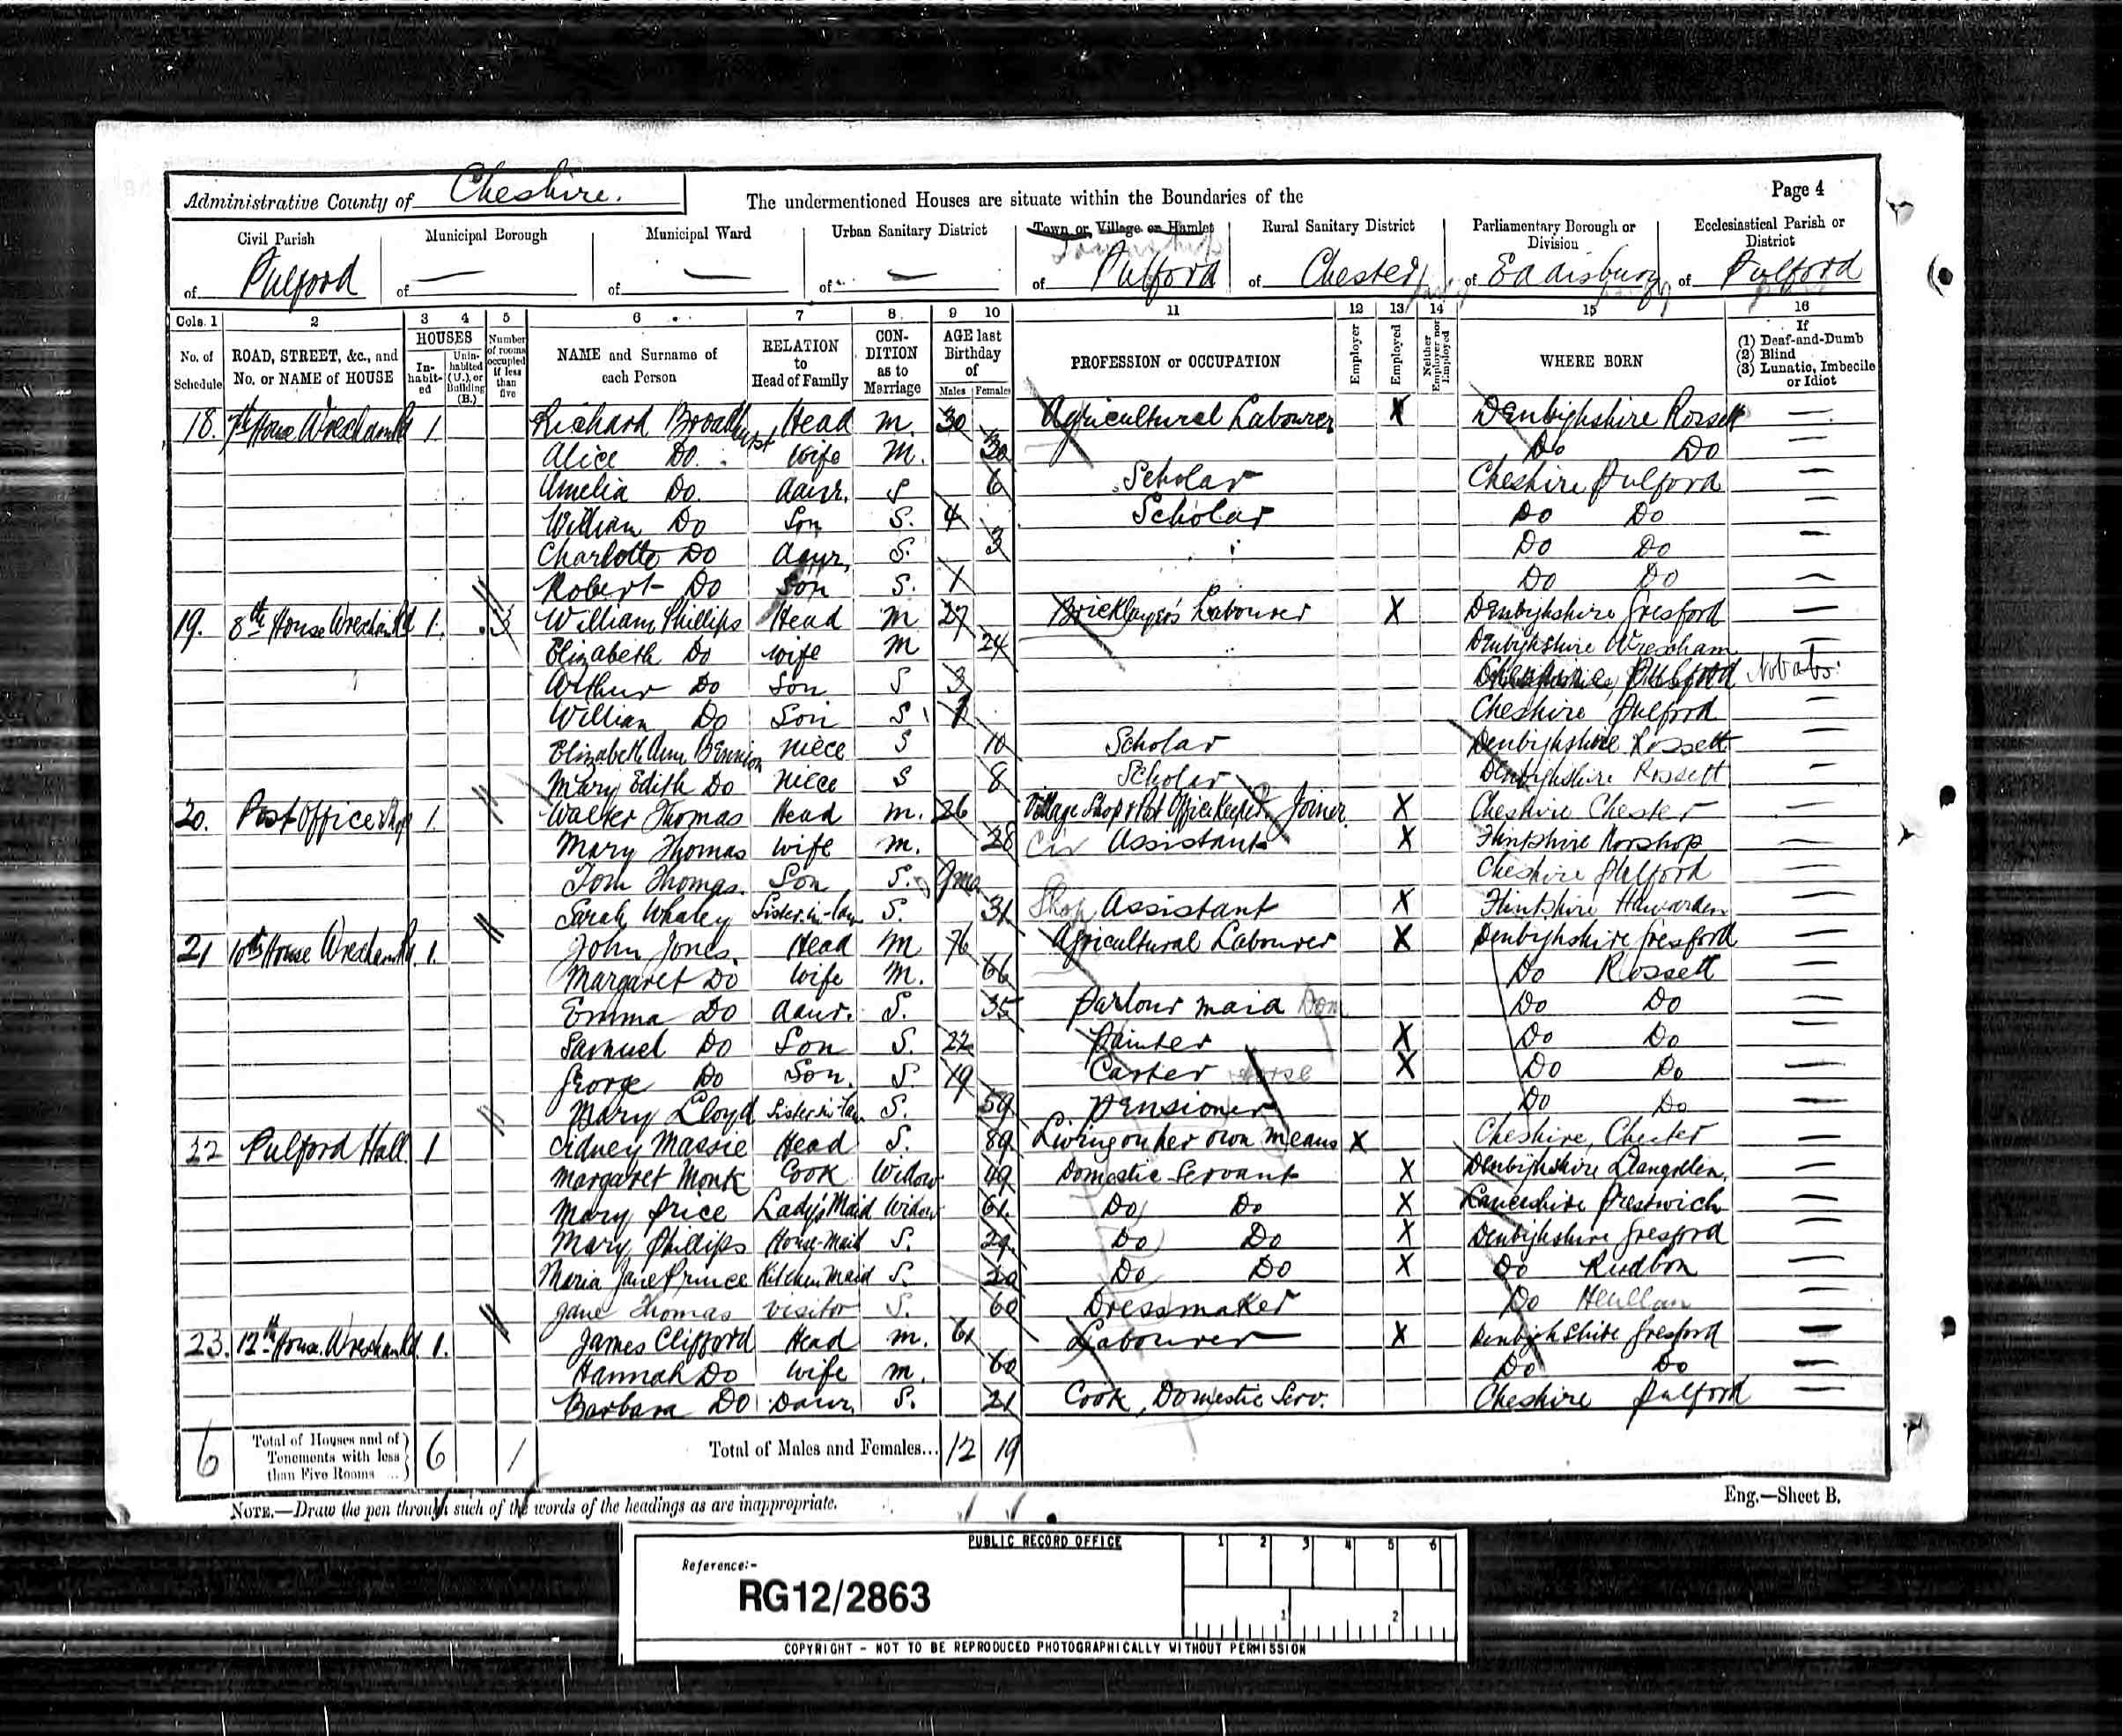 Administrative County of Cheshire. The undermentioned Houses are situate within the Boundaries of the Page 4
Civil Parish of Pulford
Municipal Borough of —
Municipal Ward of —
Urban Sanitary District of —
Town or Village or Hamlet of Pulford
Rural Sanitary District of Chester
Parliamentary Borough or Division of Eddisbury
Ecclesiastical Parish or District of Pulford
Cols. 1 2 3 4 5 6 7 8 9 10 11 12 13 14 15 16
No. of Schedule
ROAD, STREET, &c., and No. or NAME of HOUSE
HOUSES
Inhabited
Uninhabited (U.), or Building (B.)
Number of rooms occupied if less than five
NAME and Surname of each Person
RELATION to Head of Family
CONDITION as to Marriage
AGE last Birthday of
Males Females
PROFESSION or OCCUPATION
Employer
Employed
Neither Employer nor Employed
WHERE BORN
If (1) Deaf-and-Dumb (2) Blind (3) Lunatic, Imbecile or Idiot
18. 7th House Wrexham Rd 1 Richard Broadhurst Head M. 30 Agricultural Labourer X Denbighshire Rossett —
Alice Do. Wife M. 30 Do Do —
Amelia Do. Daur. S 6 Scholar Cheshire Pulford —
William Do Son S. 4 Scholar Do Do —
Charlotte Do Daur. S. 3 Do Do —
Robert Do Son S. 1 Do Do —
19. 8th House Wrexham Rd 1. 3 William Phillips Head M 27 Bricklayer's Labourer X Denbighshire Gresford —
Elizabeth Do Wife M 24 Denbighshire Wrexham —
Arthur Do Son S 3 Pulford
William Do Son S 1 Cheshire Pulford —
Elizabeth Ann Bennion Niece S 10 Scholar Denbighshire Rossett —
Mary Edith Do Niece S 8 Scholar Denbighshire Rossett —
20. Post Office & Shop 1. Walter Thomas Head M. 26 Village Shop & Post Office Keeper, Joiner X Cheshire Chester —
Mary Thomas Wife M. 28 Assistant X Flintshire Norshop —
Tom Thomas. Son S. 9mo Cheshire Pulford —
Sarah Whaley Sister-in-law S. 31 Shop Assistant X Flintshire Hawarden —
21 10th House Wrexham Rd. 1. John Jones. Head M 76 Agricultural Labourer X Denbighshire Gresford —
Margaret Do Wife M. 66 Do Rossett —
Emma Do Daur. S. 35 Parlour Maid Dom Do Do —
Samuel Do Son S. 22 Painter X Do Do —
George Do Son. S. 19 Carter Horse X Do Do —
Mary Lloyd Sister in law S. 59 Pensioner Do Do —
22 Pulford Hall 1 Cidney Massie Head S. 89 Living on her own means X Cheshire, Chester —
Margaret Monk Cook Widow 49 Domestic Servant X Denbighshire Llangollen. —
Mary Price Lady's Maid Widow 61. Do Do X Lancashire Prestwich —
Mary Phillips House-Maid S. 29. Do Do X Denbighshire Gresford —
Maria Jane Prince Kitchen Maid S. 20 Do Do X Do Ruabon —
Jane Thomas Visitor S. 60 Dressmaker Do Henllan —
23. 12th House. Wrexham Rd 1. James Clifford Head M. 61 Labourer X Denbighshire Gresford —
Hannah Do Wife M. 60 Do Do —
Barbara Do Daur. S. 21 Cook, Domestic Serv. Cheshire Pulford —
6 Total of Houses and of Tenements with less than Five Rooms ... 6 1 Total of Males and Females... 12 19
NOTE.—Draw the pen through such of the words of the headings as are inappropriate.
Eng.—Sheet B.
PUBLIC RECORD OFFICE
Reference:-
RG12/2863
1 2 3 4 5 6
1 2
COPYRIGHT - NOT TO BE REPRODUCED PHOTOGRAPHICALLY WITHOUT PERMISSION